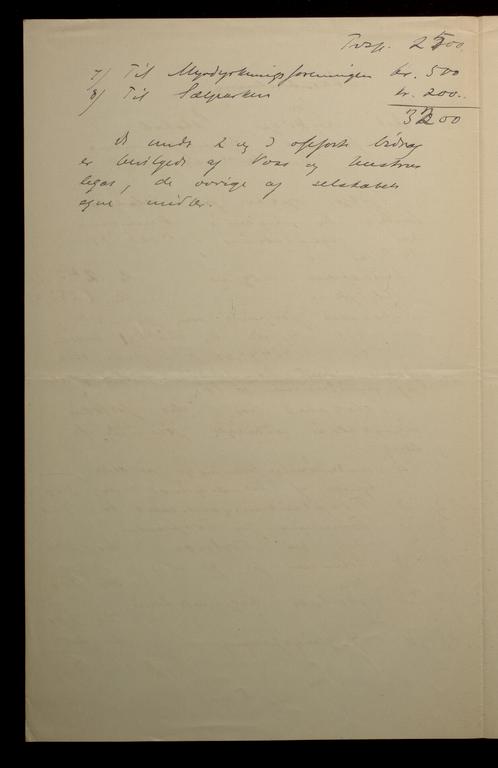 Trsp. 2500
7/ Til Myrdyrkningsforeningen kr. 500
8/ Til Sælparken kr. 200..
3200
De under 2 og 3 opførte bidrag
er bevilget af Voss og hustrus
legat, de øvrige af selskabets
egne midler.